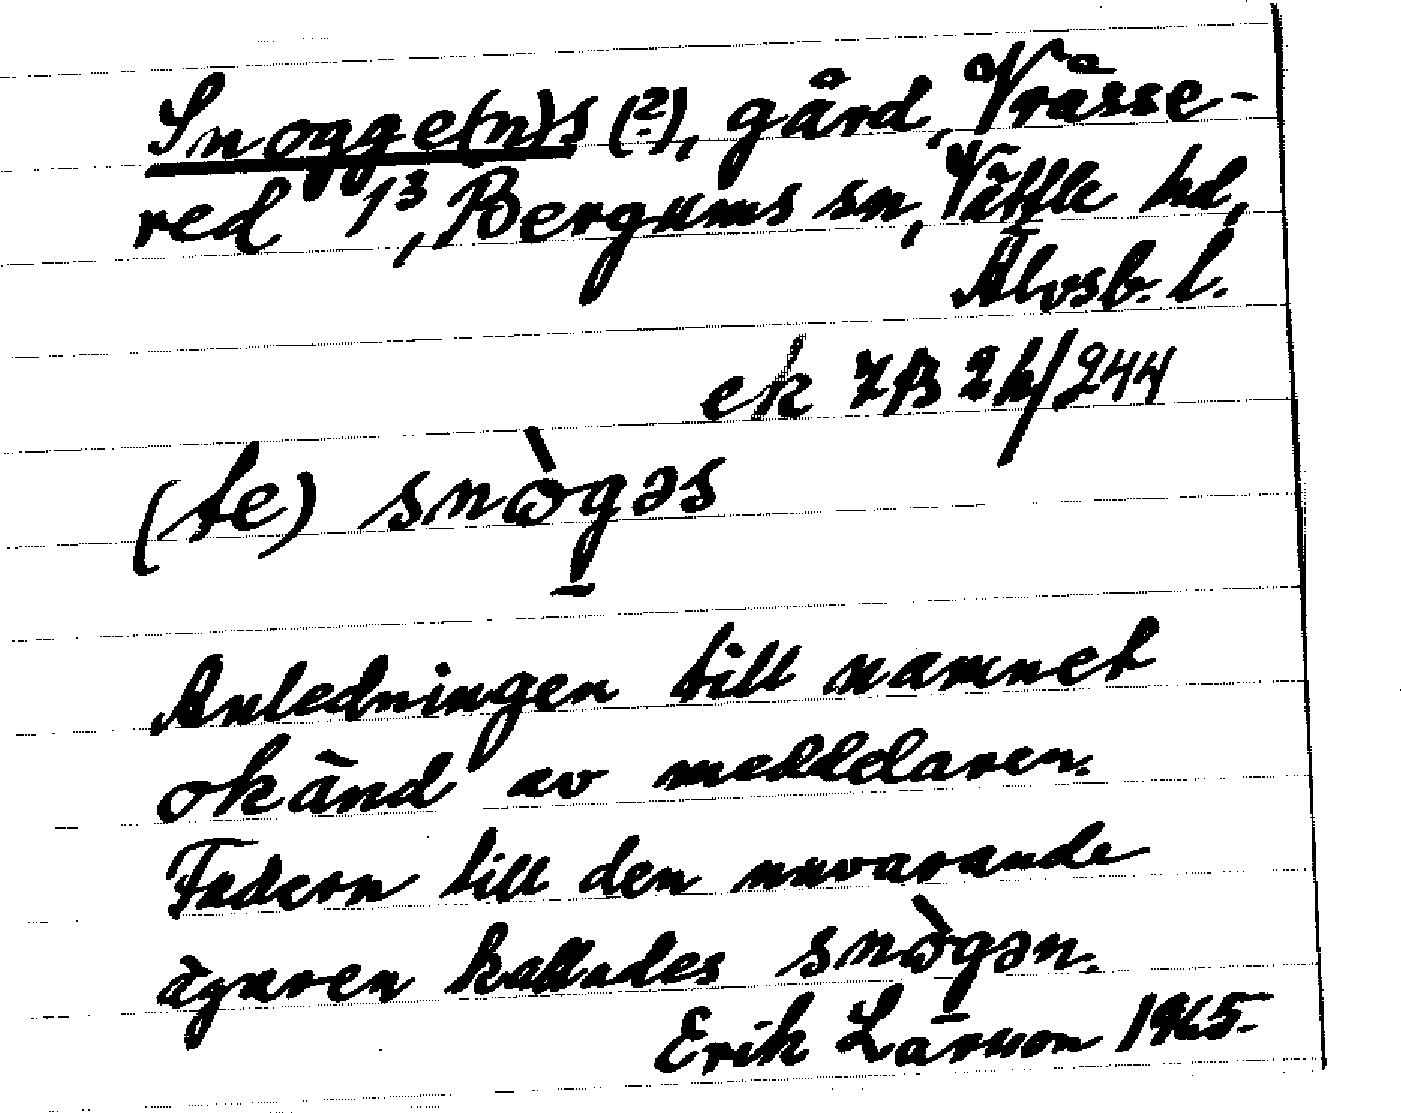 Snogge(n)s (?), gård, Vråsse-
red 1³, Bergums sn, Vättle hd,
Älvsb. l.
ek 7B 2h/244
(te) snὼgəs
Anledningen till namnet
okänd av meddelaren.
Fadern till den nuvarande
ägaren kallades snὼgən.
Erik Larsson 1965.